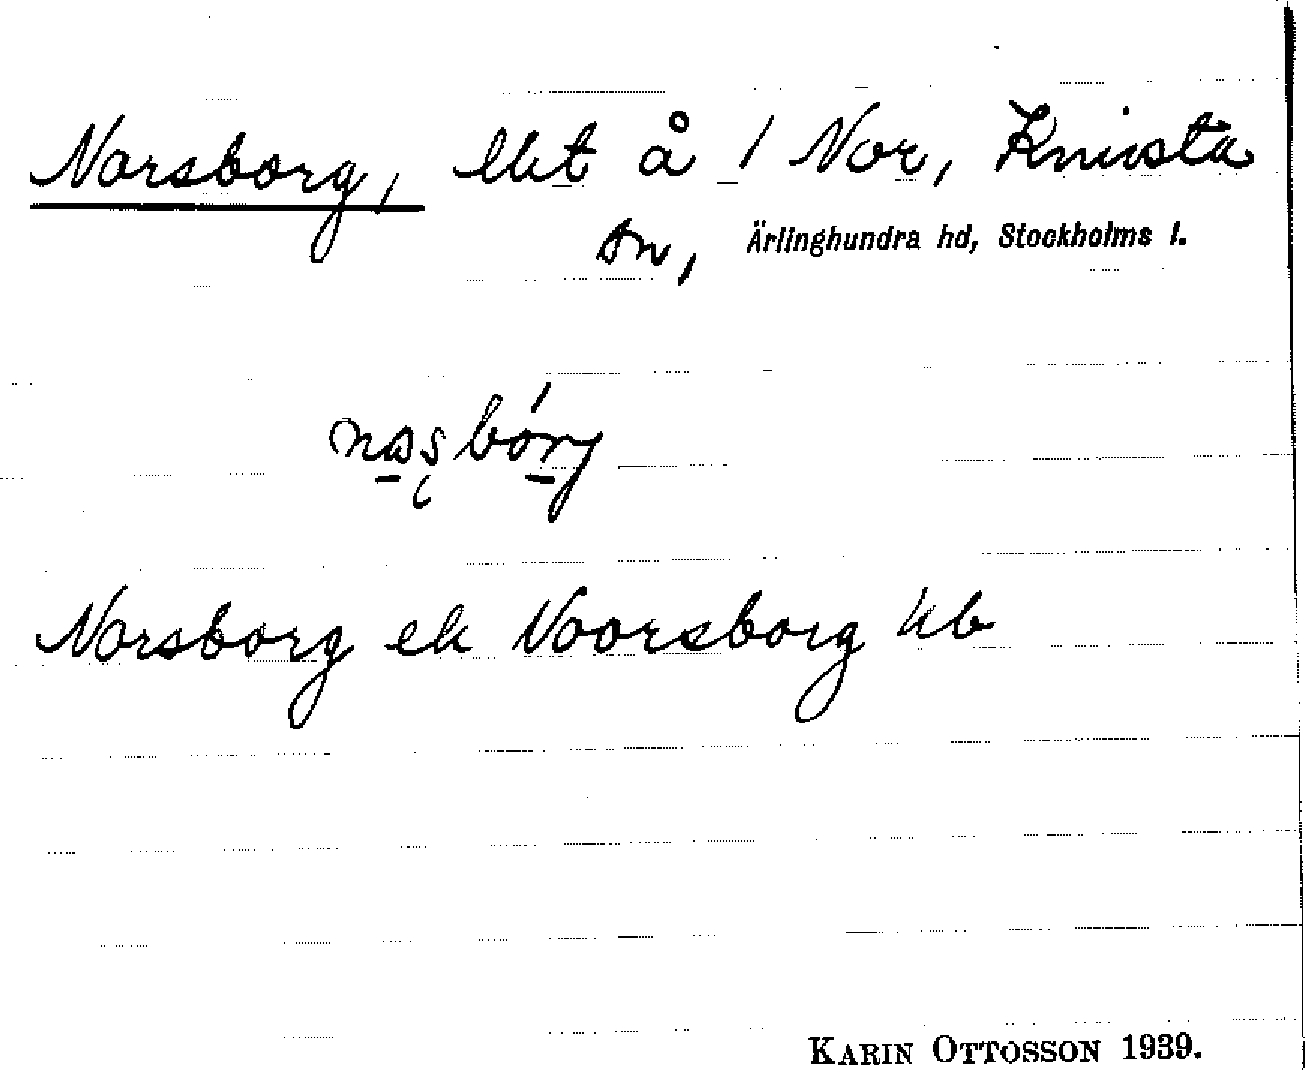 Norsborg, lht å 1 Nor, Knivsta
sn, Ärlinghundra hd, Stockholms l.
Norsborg ek Noorsborg kb
KARIN OTTOSSON 1939.